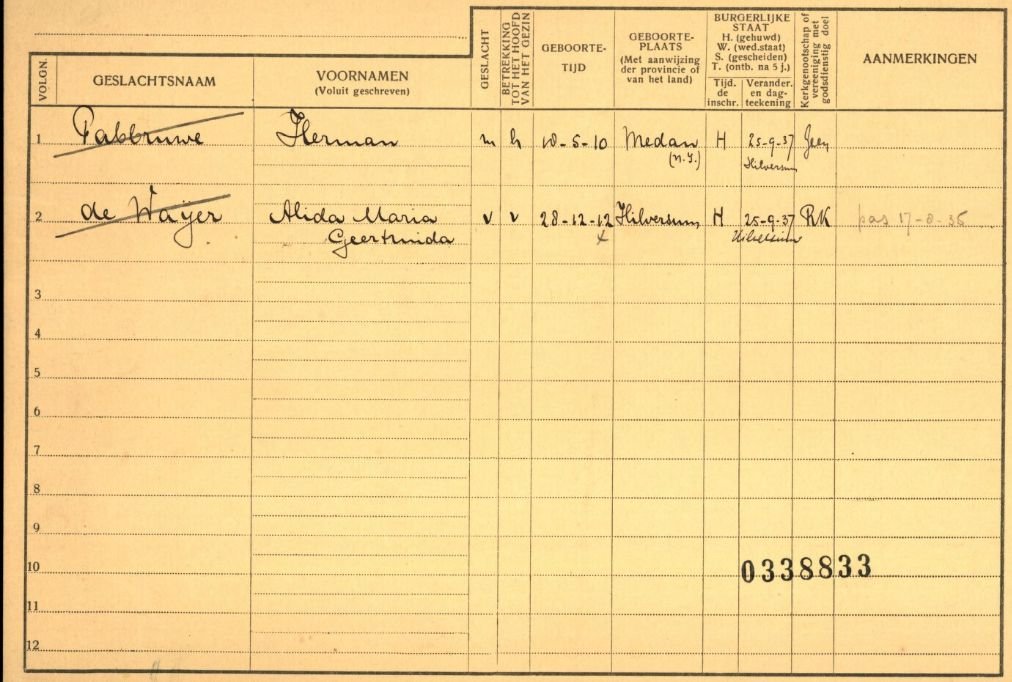 VOLGN.
GESLACHTSNAAM
VOORNAMEN
(Voluit geschreven)
GESLACHT
BETREKKING
TOT HET HOOFD
VAN HET GEZIN
GEBOORTE-
TIJD
GEBOORTE-
PLAATS
(Met aanwijzing
der provincie of
van het land)
BURGERLIJKE
STAAT
H. (gehuwd)
W. (wed.staat)
S. (gescheiden)
T. (ontb. na 5 j.)
Tijd.
de
inschr.
Verander.
en dag-
teekening
Kerkgenootschap of
vereeniging met
godsdienstig doel
AANMERKINGEN
1 Pabbruwe Herman m h 10-5-10 Medan H 25-9-37 Geen
(N.I.) Hilversum
2 de Waÿer Alida Maria v v 28-12-12 Hilversum H 25-9-37 RK pas 17-8-36
Geertruida Hilversum
3
4
5
6
7
8
9
10 0338833
11
12